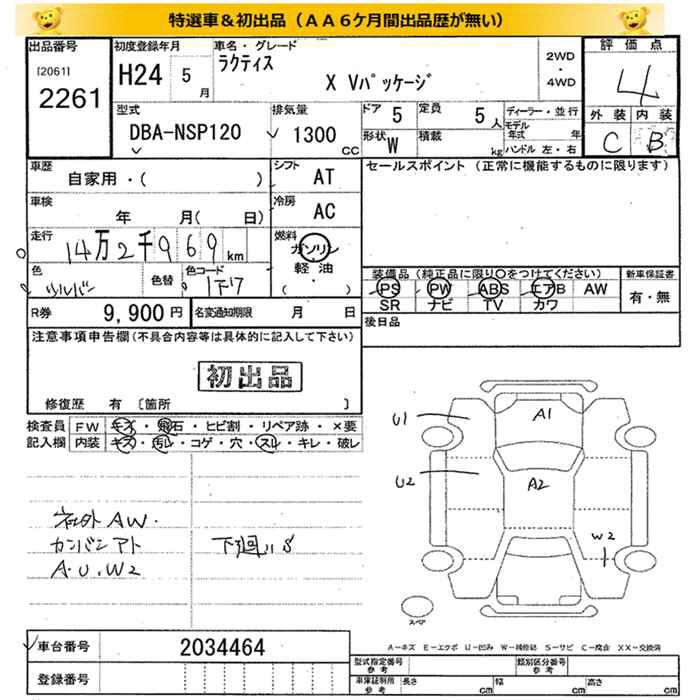 特選車＆初出品（ＡＡ６ケ月間出品歴が無い）
出品番号
[2061]
2261
初度登録年月
H24 5月
車名・グレード
ラクティス
X Vパッケージ
2WD
・
4WD
評価点
4
外装 内装
C B
型式
DBA-NSP120
排気量
1300 CC
ドア 5
定員 5人
形状 W
積載 kg
ディーラー・並行
モデル年式 年
ハンドル 左・右
車歴
自家用・( )
シフト AT
車検
年 月( 日)
冷房 AC
走行
14万2千969km
燃料
ガソリン
軽油
( )
色
シルバー
色替
色コード
1F7
R券 9,900円
名変通知期限 月 日
セールスポイント（正常に機能するものに限ります）
装備品（純正品に限り○をつけてください）
PS PW ABS エアB AW
SR ナビ TV カワ
新車保証書
有・無
後日品
注意事項申告欄(不具合内容等は具体的に記入して下さい)
初出品
修復歴 有 〔箇所 〕
検査員記入欄
FW キズ・飛石・ヒビ割・リペア跡・×要
内装 キズ・汚レ・コゲ・穴・スレ・キレ・破レ
社外AW.
カンバンアト
A.U.W2
下廻りS
U1
U2
A1
A2
W2
スペア
A－キズ E－エクボ U－凹み W－補修跡 S－サビ C－腐食 XX－交換済
車台番号 2034464
登録番号
型式指定番号 参考
類別区分番号 参考
車庫証明用 参考
長さ cm
幅 cm
高さ cm